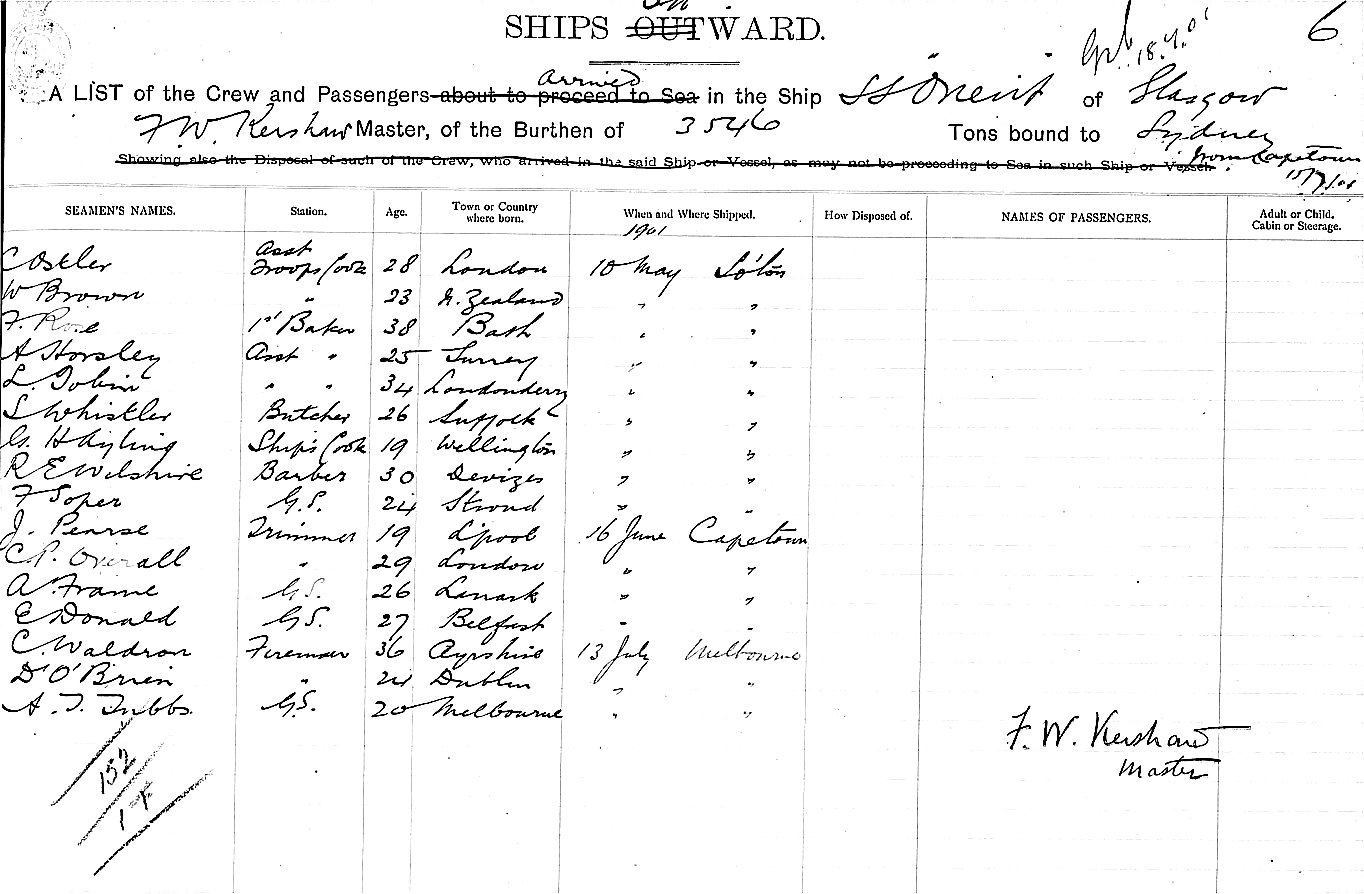 6
SHIPS OUTWARD.
A LIST of the Crew and Passengers about to proceed to Sea arrived in the Ship SS Orient of Glasgow
F. W. Kershaw Master, of the Burthen of 3546 Tons bound to Sydney
Showing also the Disposal of such of the Crew, who arrived in the said Ship or Vessel, as may not be proceeding to Sea in such Ship or Vessel.
from Capetown
SEAMEN'S NAMES. Station. Age. Town or Country where born. When and Where Shipped. How Disposed of. NAMES OF PASSENGERS. Adult or Child. Cabin or Steerage.
1901
C Osler Asst Troops Cook 28 London 10 May So'ton
W Brown " 23 N. Zealand " "
F. Rose 1st Baker 38 Bath " "
A Horsley Asst " 25 Surrey " "
L. Tobin " " 34 Londonderry " "
S Whistler Butcher 26 Suffolk " "
G. H Ayling Ship's Cook 19 Wellington " "
R E Wilshire Barber 30 Devizes " "
F Soper G.S. 24 Stroud " "
J. Pearse Trimmer 19 L'pool 16 June Capetown
C. P. Overall " 29 London " "
A. Frame G.S. 26 Lanark " "
E Donald G.S. 27 Belfast " "
C. Waldron Fireman 36 Ayrshire 13 July Melbourne
D O'Brien " 24 Dublin " "
A. T. Tubbs G.S. 20 Melbourne " "
F. W. Kershaw
Master
152